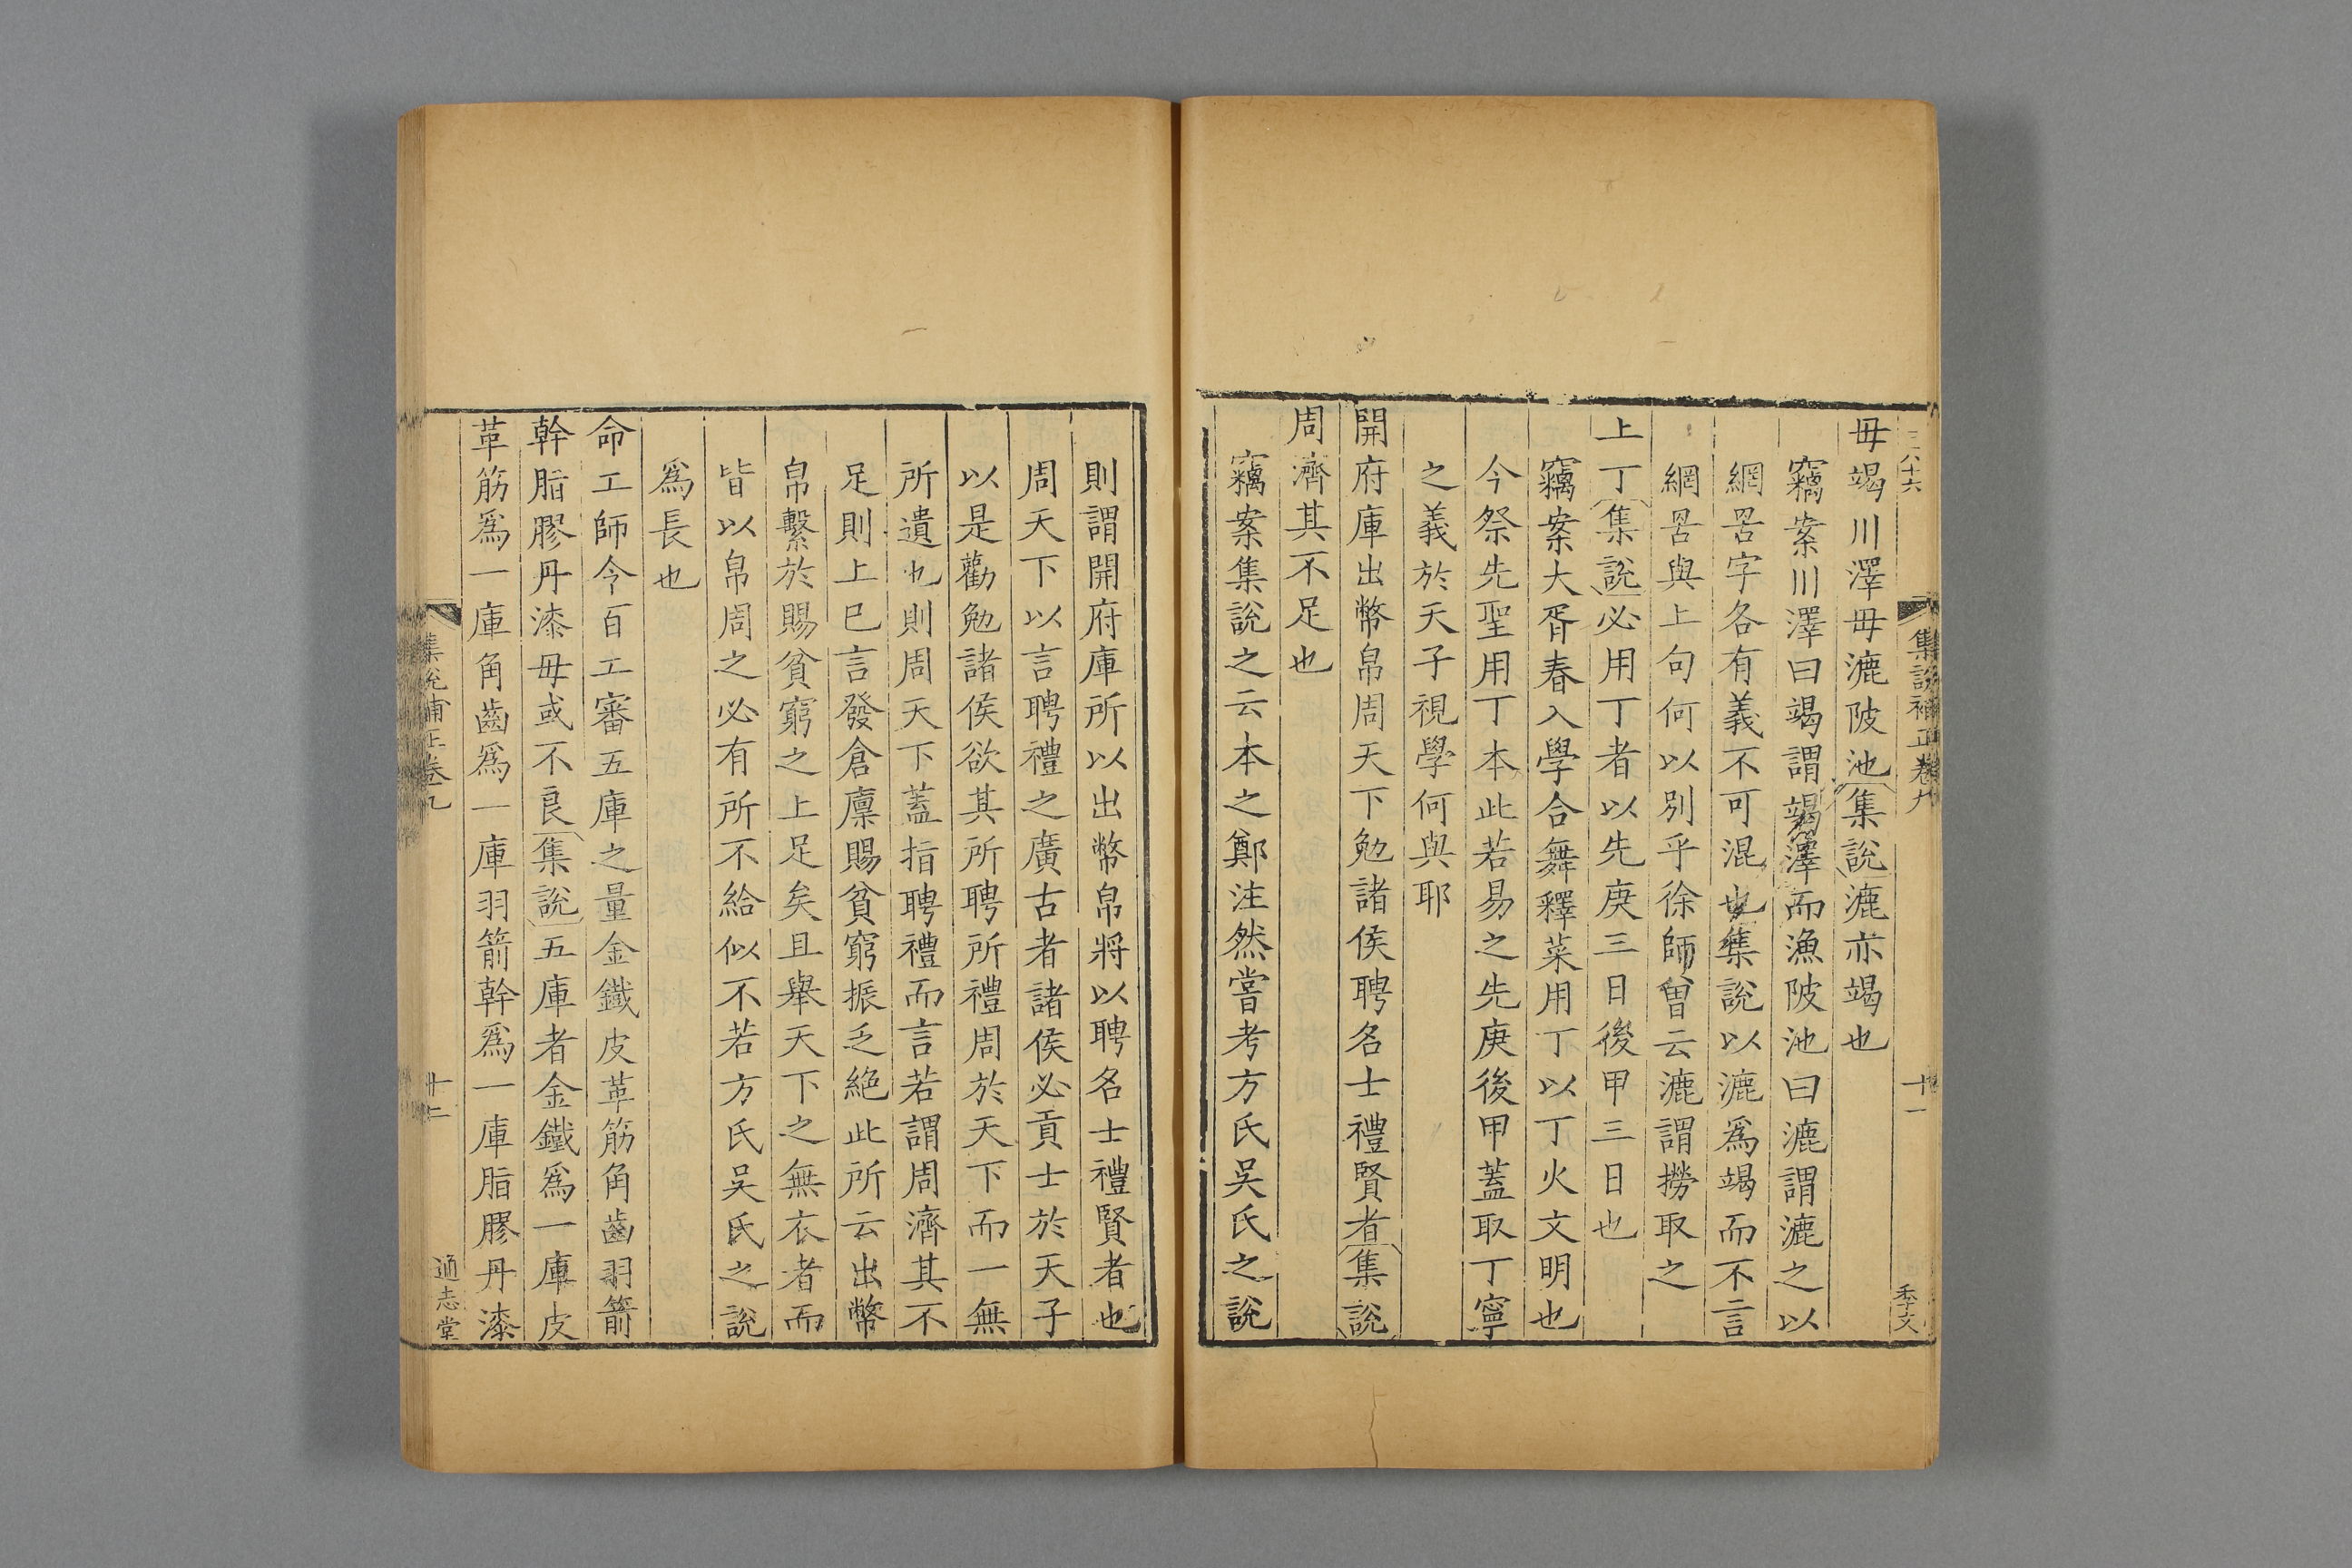 三八十六
集說補正卷九
十一
季文
毋竭川澤毋漉陂池集說漉亦竭也
竊案川澤曰竭謂竭澤而漁陂池曰漉謂漉之以
網罟字各有義不可混也集說以漉爲竭而不言
網罟與上句何以別乎徐師曾云漉謂撈取之
上丁集說必用丁者以先庚三日後甲三日也
竊案大胥春入學合舞釋菜用丁以丁火文明也
今祭先聖用丁本此若易之先庚後甲蓋取丁寧
之義於天子視學何與耶
開府庫出幣帛周天下勉諸侯聘名士禮賢者集說
周濟其不足也
竊案集說之云本之鄭注然嘗考方氏吳氏之說
則謂開府庫所以出幣帛將以聘名士禮賢者也
周天下以言聘禮之廣古者諸侯必貢士於天子
以是勸勉諸侯欲其所聘所禮周於天下而一無
所遺也則周天下蓋指聘禮而言若謂周濟其不
足則上巳言發倉廩賜貧窮振乏絕此所云出幣
帛繫於賜貧窮之上足矣且舉天下之無衣者而
皆以帛周之必有所不給似不若方氏吳氏之說
爲長也
命工師令百工審五庫之量金鐵皮革筋角齒羽箭
幹脂膠丹漆毋或不良集說五庫者金鐵爲一庫皮
革筋爲一庫角齒爲一庫羽箭幹爲一庫脂膠丹漆
集說補正卷九
十二
通志堂